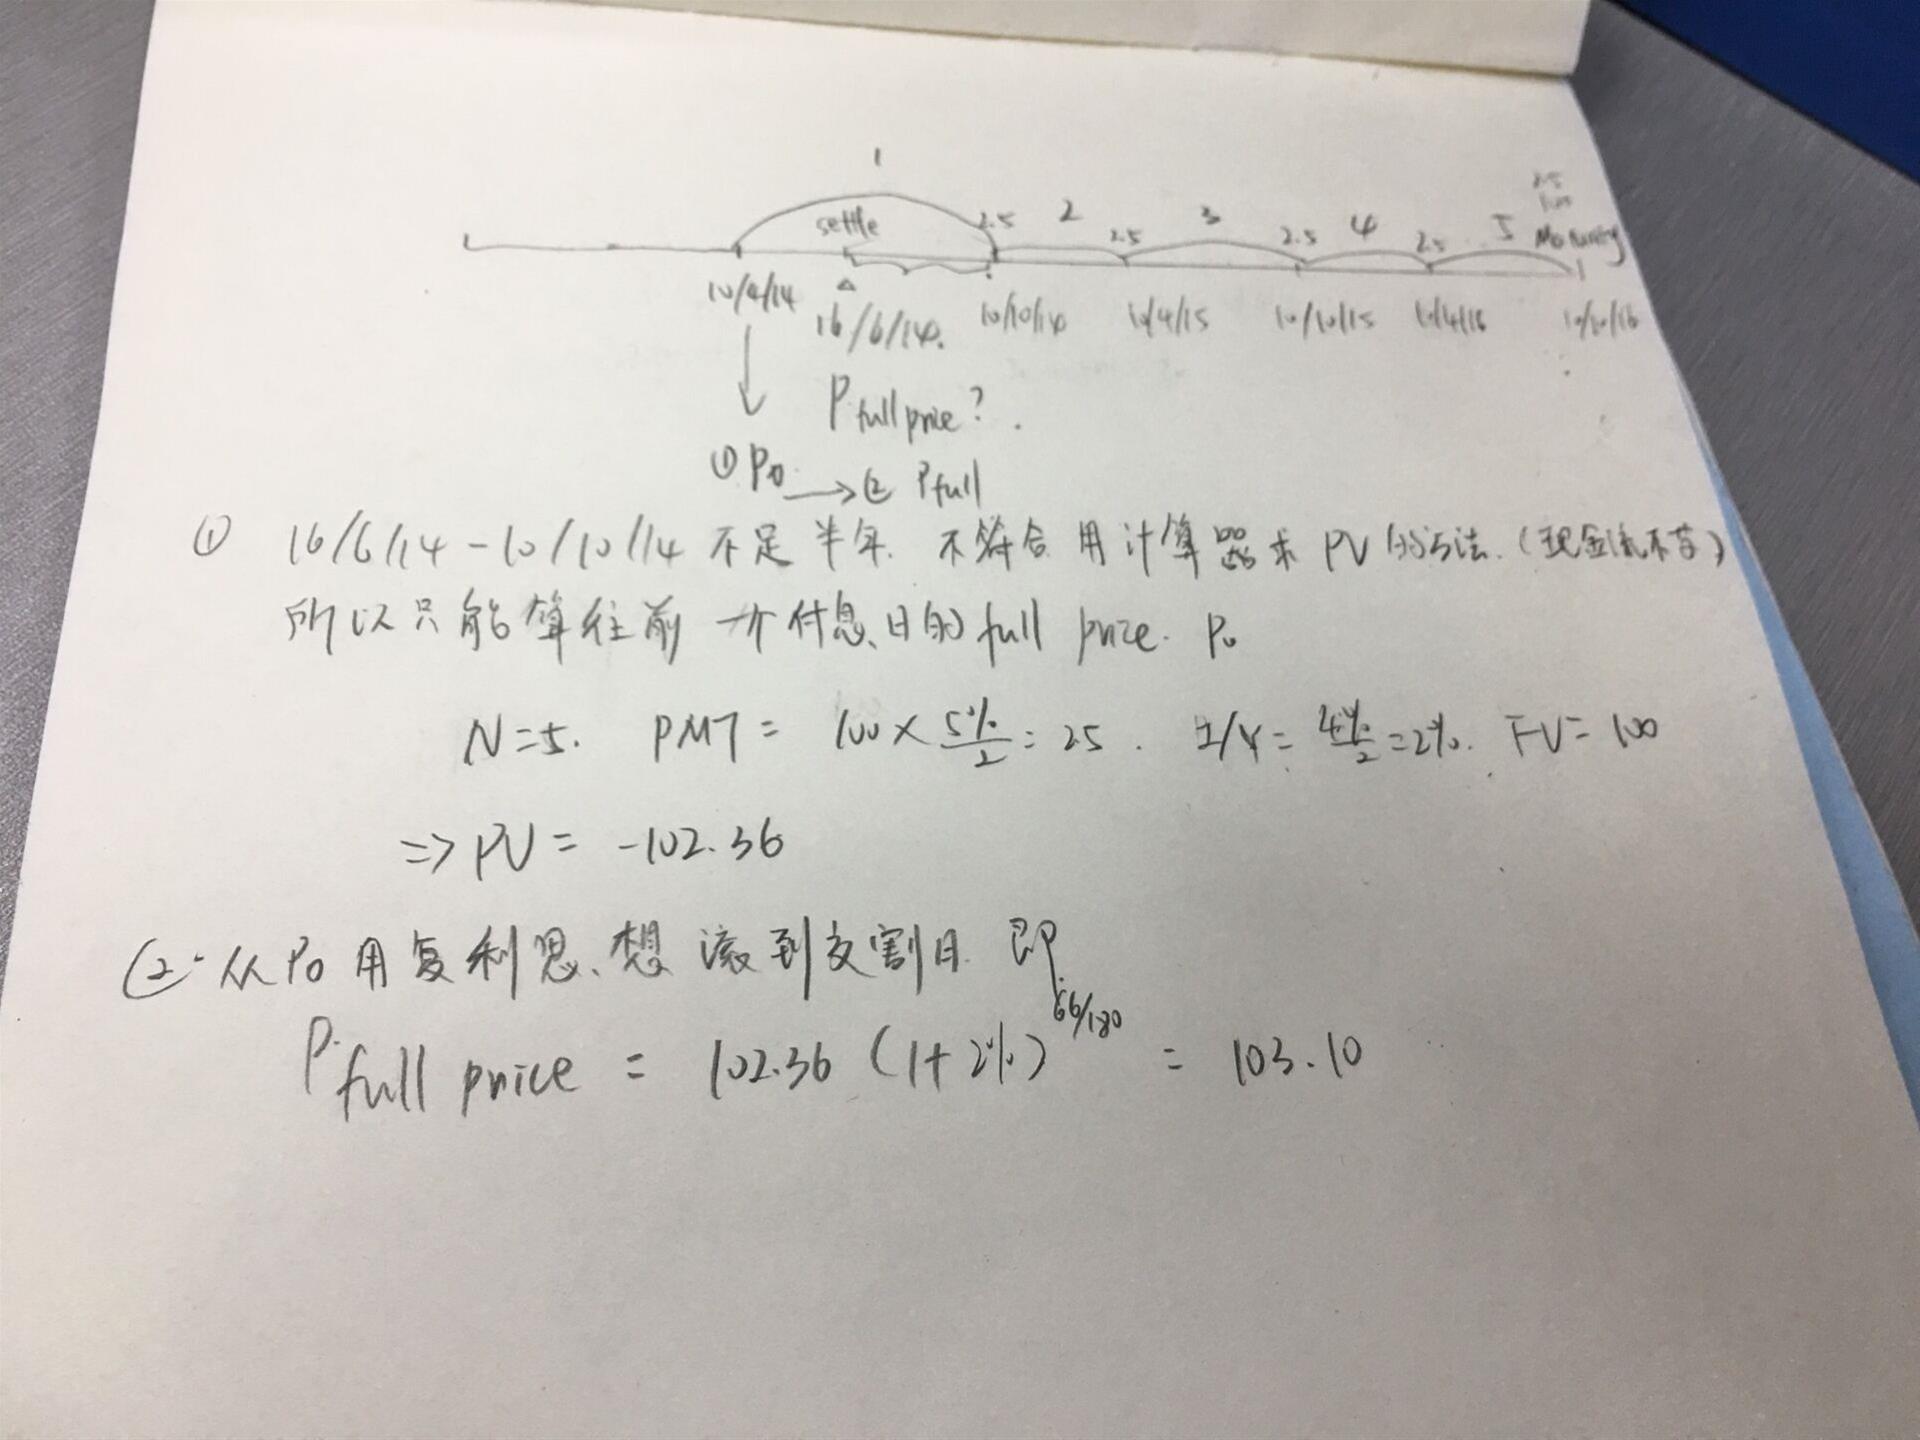 1
settle 2.5 2 2.5 3 2.5 4 2.5 5 Maturity
10/4/14 16/6/14. 10/10/14 10/4/15 10/10/15 10/4/16 10/10/16
P full price?.
① P0 → ② Pfull
① 16/6/14-10/10/14 不足半年. 不符合用计算器求 PV 的方法.(现金流不等)
所以只能算往前一个付息日的 full price. P0
N=5. PMT = 100 × 5%/2 = 25. I/Y = 4%/2 = 2%. FV = 100
=> PV = -102.36
②. 从P0用复利思想滚到交割日. 即
P full price = 102.36 (1+2%)^66/180 = 103.10